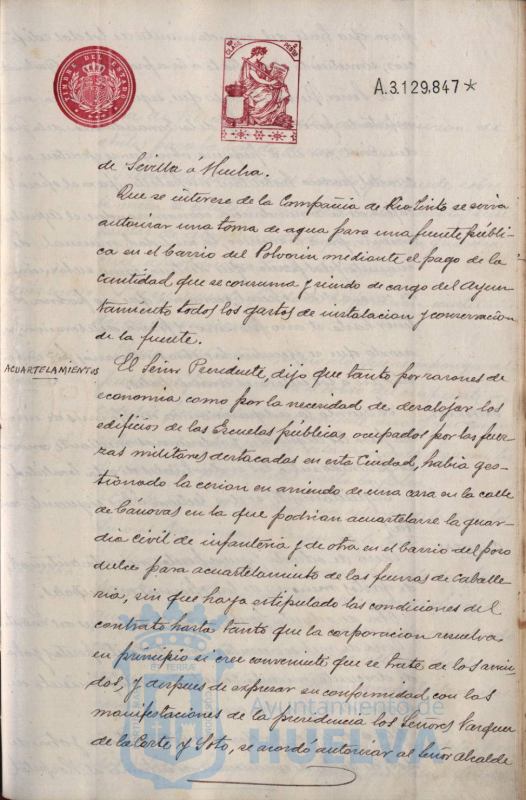 TIMBRE DEL ESTADO
CLASE
A.3.129.847*
de Sevilla á Huelva.
Que se interese de la Compañia de Rio Tinto se sirva
autorizar una toma de agua para una fuente públi-
ca en el barrio del Polvorin mediante el pago de la
cantidad que se consuma y siendo de cargo del Ayun-
tamiento todos los gastos de instalacion y conservacion
de la fuente.
ACUARTELAMIENTOS
El Señor Presidente, dijo que tanto por razones de
economia como por la necesidad de desalojar los
edificios de las Escuelas públicas ocupados por las fuer-
zas militares destacadas en esta Ciudad, habia ges-
tionado la cesion en arriendo de una casa en la calle
de Cánovas en la que podrian acuartelarse la guar-
dia civil de infanteria y de otra en el barrio del pozo
dulce para acuartelamiento de las fuerzas de caballe-
ria, sin que haya estipulado las condiciones del
contrato hasta tanto que la corporacion resuelva
en principio si cree conveniente que se trate de los arrien-
dos, y despues de expresar su conformidad con las
manifestaciones de la presidencia los Señores Vazquez
de la Corte y Soto, se acordó autorizar al Señor Alcalde
Ayuntamiento de
HUELVA